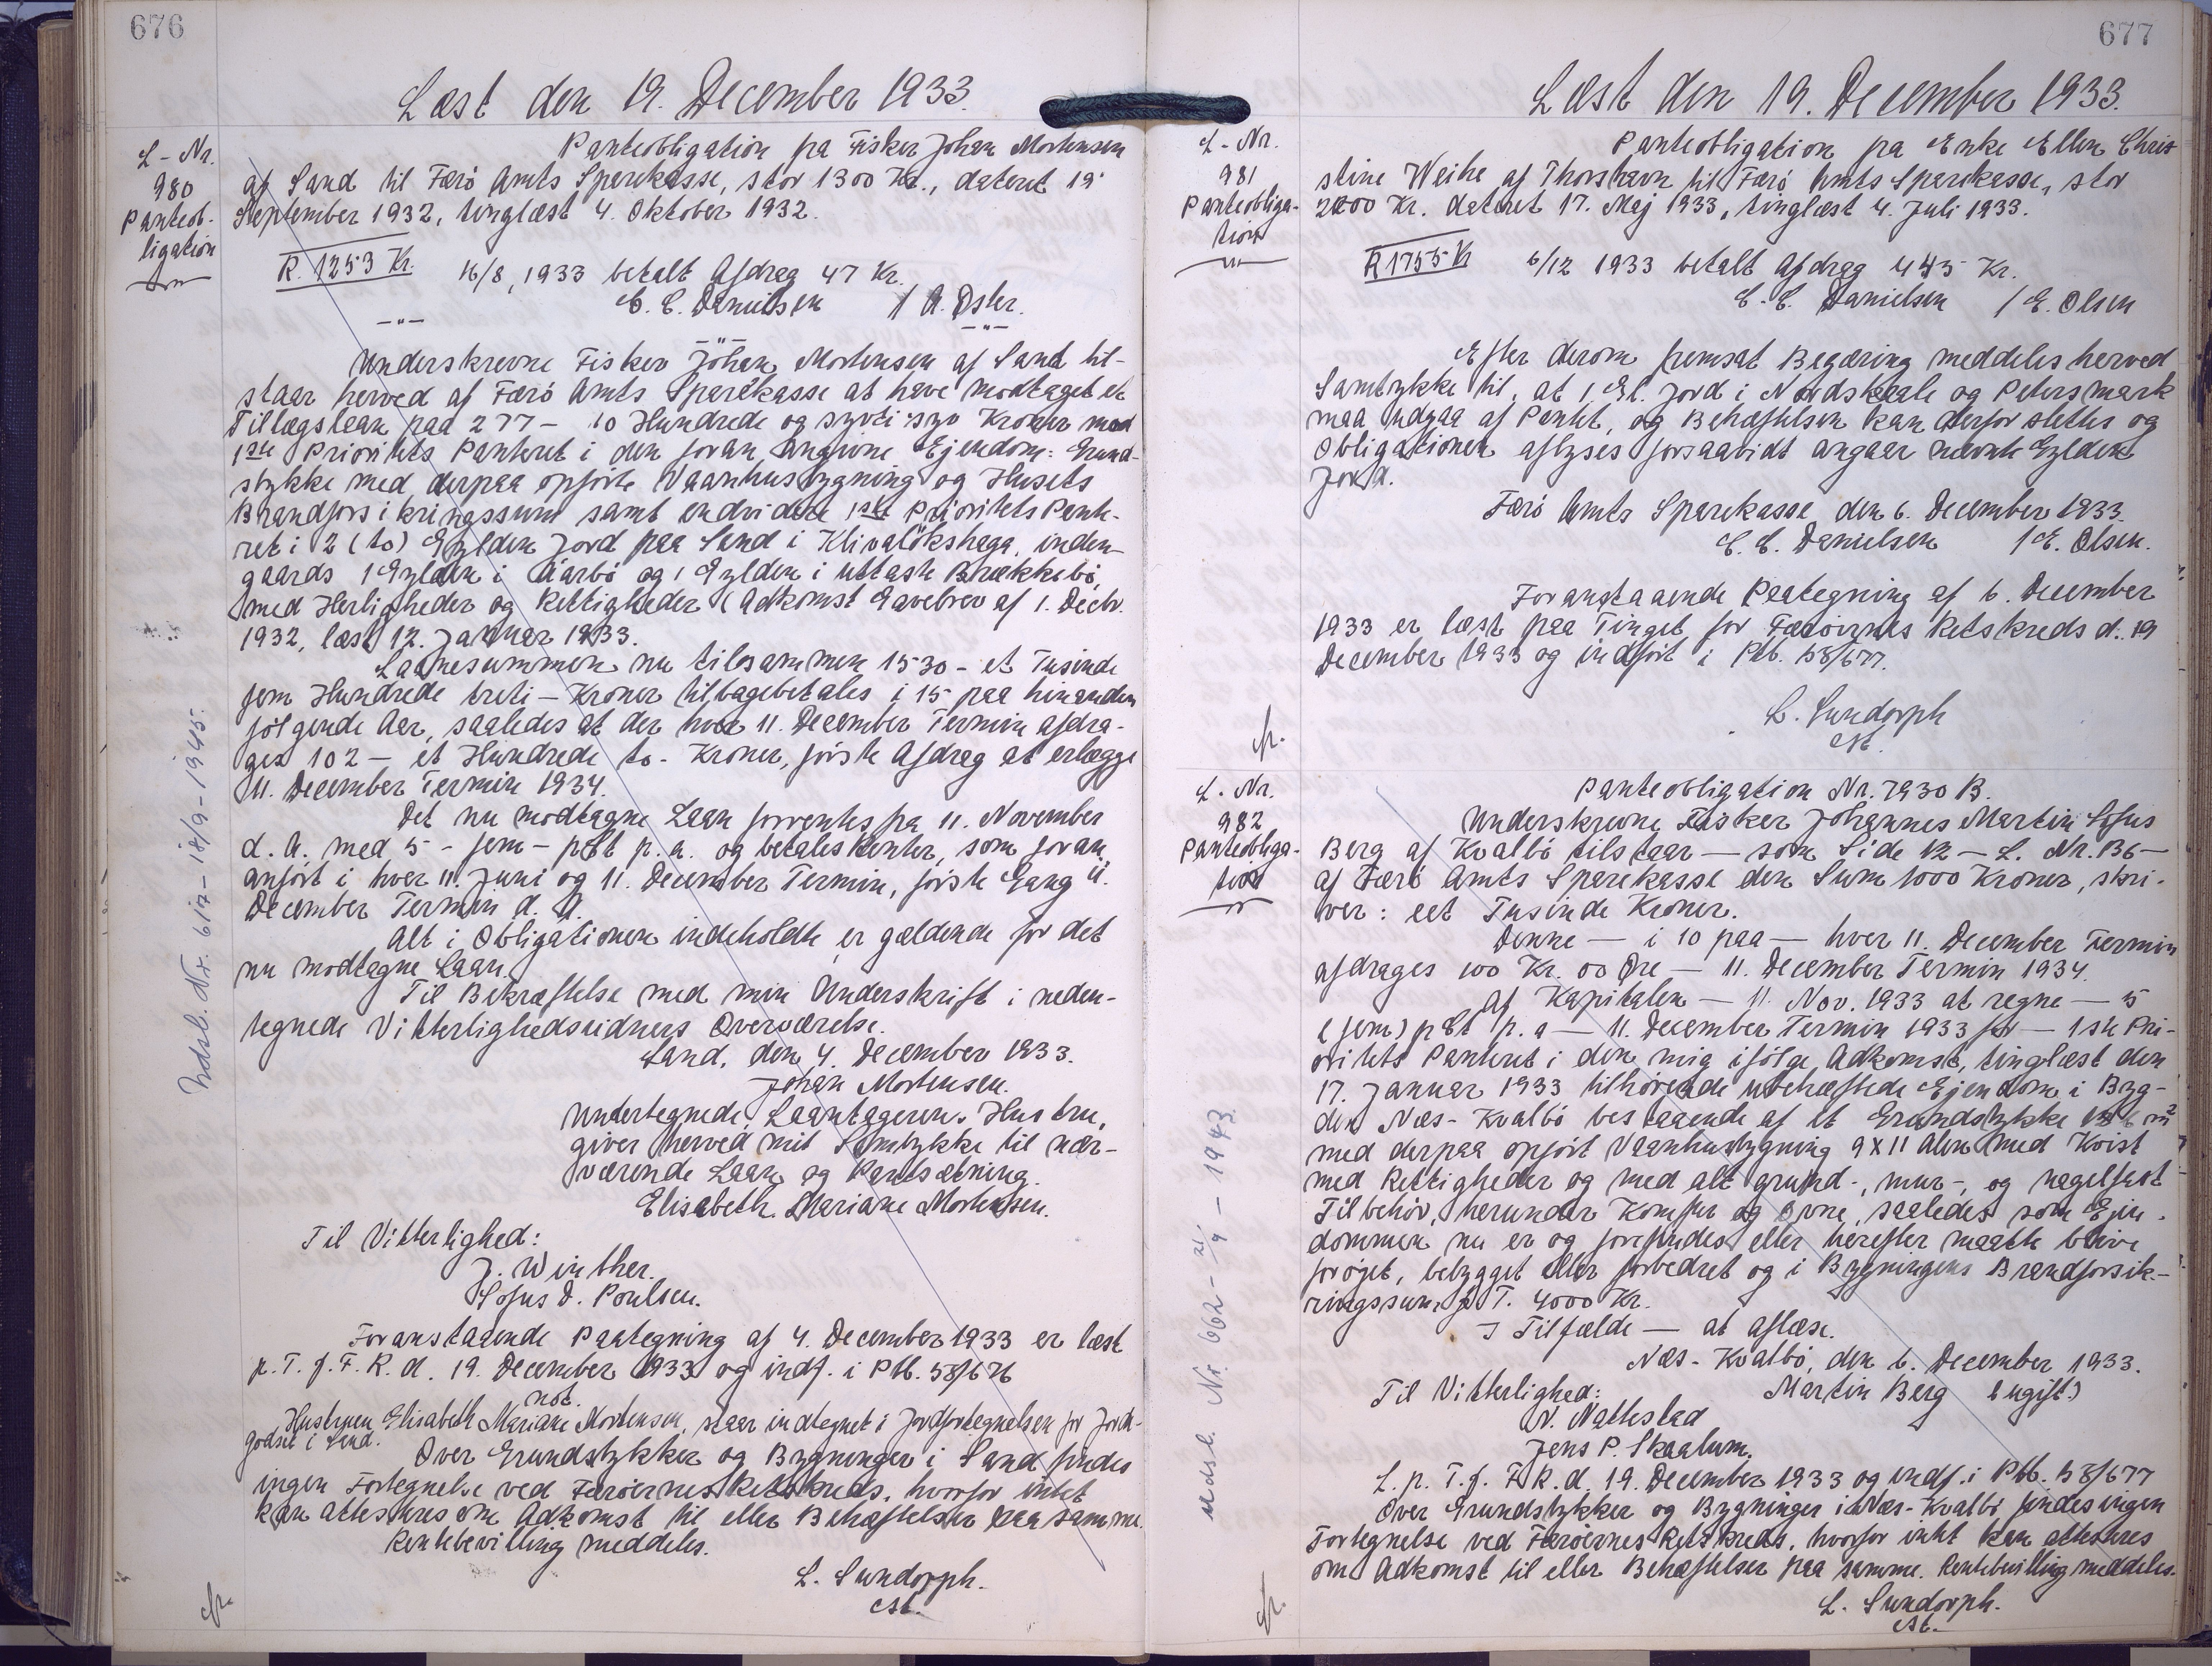 676
Læst den 19. December 1933.
L-Nr.
980
Panteob-
ligation
Panteobligation fra Fisker Johan Mortensen
af Sand til Færö Amts Sparekasse, stor 1300 Kr., dateret 19.
September 1932, tinglæst 4. Oktober 1932.
R. 1253 Kr. 16/8, 1933 betalt Afdrag 47 Kr.
C. C. Danielsen / A. Øster.
Underskrevne Fisker Johan Mortensen af Sand til-
staar herved af Færö Amts Sparekasse at have modtaget et
Tillægslaan paa 277 - to Hundrede og syvti syv Kroner mod
1ste Prioritets Panteret i den foran angivne Ejendom: Grund-
stykke med derpaa opförte Vaanhusbygning og Husets
Brandforsikringssum samt endvidere 1ste Prioritets Pante-
ret i 2 (to) Gylden Jord paa Sand i Klivalökshaga, inden-
gaards 1 Gylden i Aarbö og 1 Gylden i uttaste Brekkebö,
med Herligheder og Rettigheder (Adkomst Gavebrev af 1. Decbr.
1932, læst 12. Januar 1933.
Laanesummen nu tilsammen 1530 - et Tusinde
fem Hundrede treti - Kroner tilbagebetales i 15 paa hinanden
fölgende Aar, saaledes at der hver 11. December Termin afdra-
ges 102 - et Hundrede to - Kroner, förste Afdrag at erlægge
11. December Termin 1934.
Det nu modtagne Laan forrentes fra 11. November
d. A. med 5 - fem - pCt p. a. og betales Renter, som foran
anfört i hver 11. Juni og 11. December Termin, förste Gang 11.
December Termin d. A.
Alt i Obligationen indeholdte er gældende for det
nu modtagne Laan.
Til Bekræftelse med min Underskrift i neden-
tegnede Vitterlighedsvidners Overværelse.
Sand, den 4. December 1933.
Johan Mortensen.
Undertegnede, Laantagerens Hustru,
giver herved mit Samtykke til nær-
værende Laan og Pantsætning.
Elisabeth Mariane Mortensen.
Til Vitterlighed:
J. Winther.
Sofus D. Poulsen.
Foranstaaende Paategning af 4. December 1933 er læst
p. T. f. F. R. d. 19. December 1933 og indf. i Ptb. 58/676
not.
Hustruen Elisabeth Mariane Mortensen, staar indtegnet i Jordfortegnelsen for Jorde-
godset i Sand.
Over Grundstykker og Bygninger i Sand findes
ingen Fortegnelse ved Færöernes Retskreds, hvorfor intet
kan attesteres om Adkomst til eller Behæftelser paa samme.
Rentebevilling meddeles.
L. Sundorph.
cst.
cfr.
Udsl. Nr. 617 - 18/9 - 1945.
677
Læst den 19. December 1933.
L-Nr.
981
Panteobliga-
tion
Panteobligation fra Enke Ellen Chris-
stine Weihe af Thorshavn til Færö Amts Sparekasse, stor
2200 Kr. dateret 17. Maj 1933, tinglæst 4. Juli 1933.
R 1755 Kr 6/12 1933 betalt Afdrag 445 Kr.
C. C. Danielsen / E. Olsen
Efter derom fremsat Begæring meddeles herved
Samtykke til, at 1 Gl. Jord i Nordskaale og Petersmark
maa udgaa af Pantet, og Behæftelsen kan derfor slettes og
Obligationen aflyses forsaavidt angaar nævnte Gylden
Jord.
Færö Amts Sparekasse, den 6. December 1933.
C. C. Danielsen / E. Olsen.
Foranstaaende Paategning af 6. December
1933 er læst paa Tinget for Færöernes Retskreds d. 19
December 1933 og indfört i Ptb. 58/677.
L. Sundorph
cst.
cfr.
L. Nr.
982
Panteobliga-
tion
Panteobligation Nr. 7930 B.
Underskrevne Fisker Johannes Martin Sofus
Berg af Kvalbö tilstaar — som Side 12 — L. Nr. 136 —
af Færö Amts Sparekasse den Sum 1000 Kroner, skri-
ver: eet Tusinde Kroner.
Denne — i 10 paa — hver 11. December Termin
afdrages 100 Kr. 00 Øre — 11. December Termin 1934.
af Kapitalen — 11. Nov. 1933 at regne — 5
(fem) pCt p. a — 11. December Termin 1933 for — 1ste Pri-
oritets Panteret i den mig ifölge Adkomst, tinglæst den
17. Januar 1933 tilhørende ubehæftede Ejendom i Byg-
den Næs - Kvalbö bestaaende af et Grundstykke m²
med derpaa opfört Vaanhusbygning 9 x 11 Alen med Kvist
med Rettigheder og med alt grund-, mur-, og nagelfast
Tilbehör, herunder Komfur og Ovne, saaledes som Ejen-
dommen nu er og forefindes eller herefter maatte blive
forøget, bebygget eller forbedret og i Bygningens Brandforsik-
ringssum, p. T. 4000 Kr.
I Tilfælde — at aflæse.
Næs - Kvalbö, den 6. December 1933.
Til Vitterlighed: Martin Berg (ugift)
N. Nattestad
Jens P. Skaalum.
L. p. T. f. F. R. d. 19. December 1933 og indf. i Ptb. 58/677
Over Grundstykker og Bygninger i Næs - Kvalbö findes ingen
Fortegnelse ved Færöernes Retskreds, hvorfor intet kan attesteres
om Adkomst til eller Behæftelser paa samme. Rentebevilling meddeles.
L. Sundorph.
cst.
cfr.
Udsl. Nr. 662 - 21/9 - 1943.